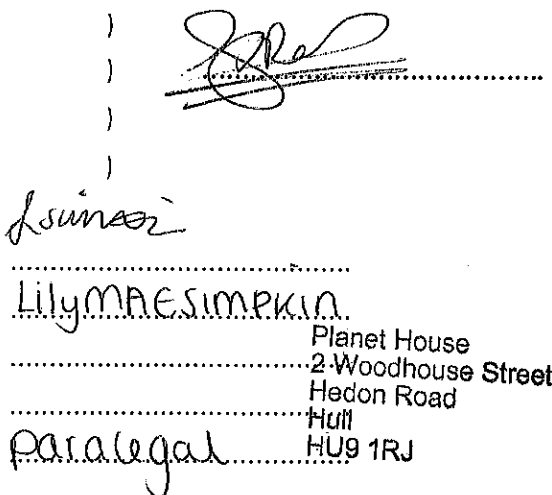 )
)
)
)
LilyMAESIMPKIN
Planet House
2 Woodhouse Street
Hedon Road
Hull
HU9 1RJ
paralegal